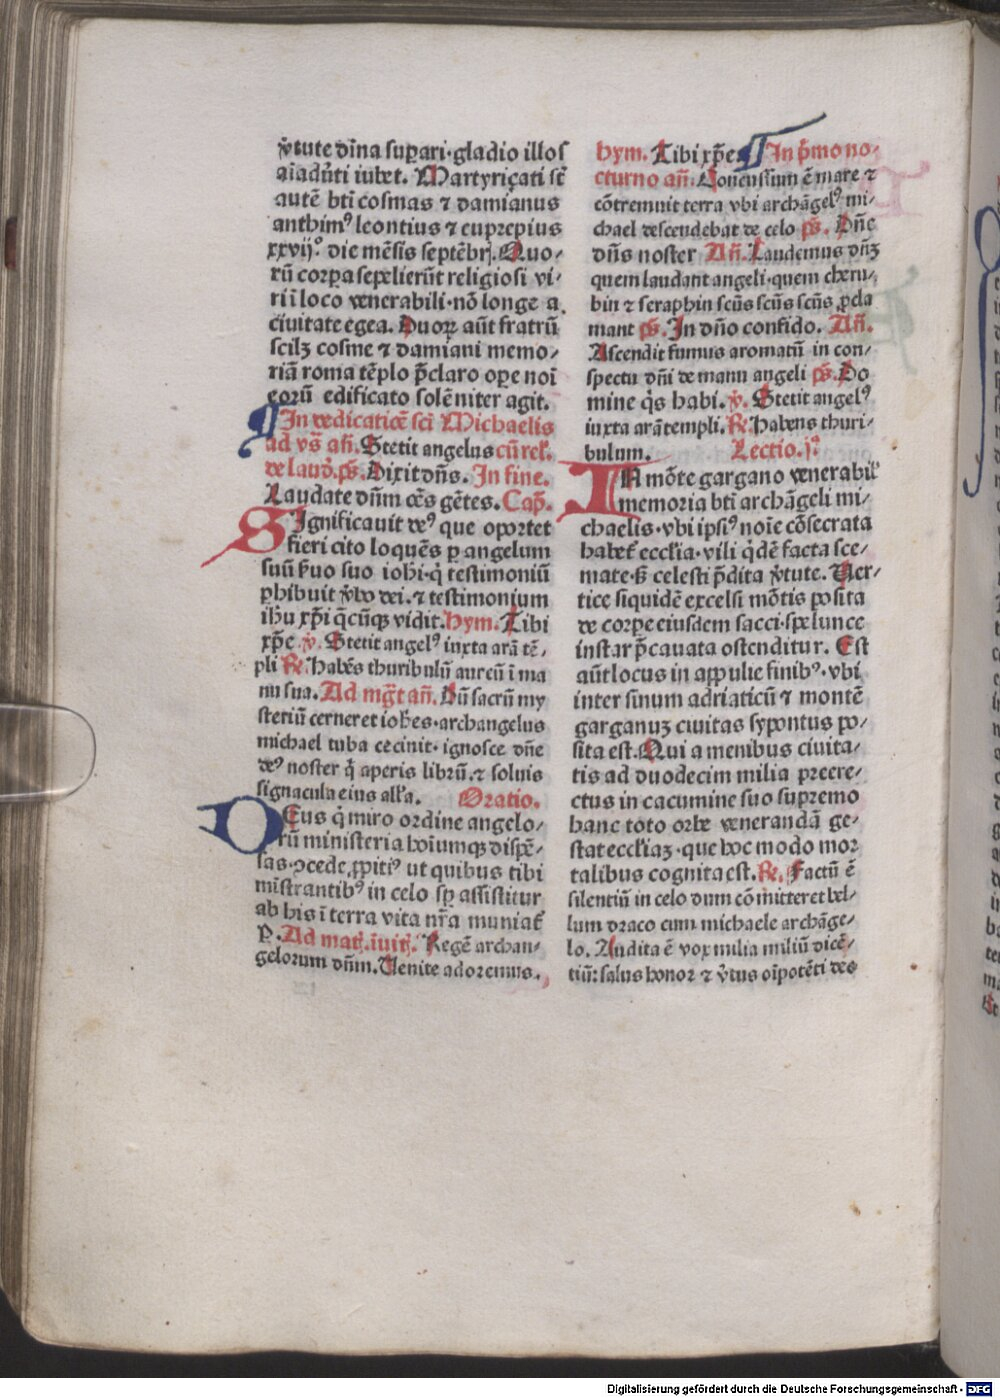 v̾tute diĩna suꝑari·gladio illos
aiadũti iubet. Martyriçati sũt
autẽ bti cosmas ⁊ damianus
anthimꝰ leontius ⁊ euprepius
xxvij.° die mẽsis septẽbrꝭ. Quo⸗
rũ corꝑa sepelierũt religiosi vi⸗
ri i loco venerabili·nõ longe a
ciuitate egea. Duorꝝ aũt fratrũ
scilꝫ cosme ⁊ damiani memo⸗
riã roma tẽplo p̃claro oꝑe noi
eorũ edificato solẽniter agit.
¶ In dedicatiõe sc̃i Michaelis
ad vs̃ añ. Stetit angelus cũ rel̃.
de laud̾.ps̃. Dixit dñs. In fine.
Laudate dñm oẽs gẽtes. Cap̃.
SIgnificauit deꝰ que oportet
fieri cito loquẽs ꝑ angelum
suũ ẜuo suo iohi·q̇ testimoniũ
ꝑhibuit v̾bo dei.⁊ testimonium
ihu xp̃i q̃cũqꝫ vidit. hym. Tibi
xp̃e v̾. Stetit angelꝰ iuxta arã tẽ⸗
pli Rẽ. Habẽs thuribulũ aureũ ĩ ma
nu sua. Ad mg̃t añ. Dũ sacrũ my
steriũ cerneret ioh̃es·archangelus
michael tuba cecinit·ignosce dñe
deꝰ noster q̇ aperis librũ.⁊ soluis
signacula eius all̃a. Oratio.
DEus q̇ miro ordine angelo⸗
rũ ministeria hoiumqꝫ dispẽ⸗
sas·ꝯcede ꝓpitiꝰ ut quibus tibi
mĩstrantibꝰ in celo sꝑ assistitur
ab his ĩ terra vita nr̃a muniat̃
ꝑ. Ad matꝭ.ĩuitꝭ. Regẽ archan⸗
gelorum dñm. Venite adoremus.
hym. Tibi xp̃e. ¶ In p̃mo no⸗
cturno añ. Concussum ẽ mare ⁊
cõtremuit terra vbi archãgelꝰ mi⸗
chael descendebat de celo ps̃. Dñe
dñs noster Añ. Laudemus dñꝫ
quem laudant angeli·quem cheru⸗
bin ⁊ seraphin scũs scũs scũs ꝓcla
mant ps̃. In dño confido. Añ.
Ascendit fumus aromatũ in con⸗
spectu dñi de manu angeli ps̃. Do
mine q̇s habi. v̾. Stetit angelꝰ
iuxta arã templi. Rẽ. Habens thuri⸗
bulum. Lectio.jᵃ.
IN mõte gargano venerabil̃
memoria bti archãgeli mi⸗
chaelis·vbi ipsiꝰ noĩe cõsecrata
habet̃ eccl̃ia·vili q̇dẽ facta sce⸗
mate·ẜ celesti p̃dita v̾tute. Ver⸗
tice siquidẽ excelsi mõtis posita
de corꝑe eiusdem sacci·spelunce
instar p̃cauata ostenditur. Est
aũt locus in appulie finibꝰ·vbi
inter sinum adriaticũ ⁊ montẽ
garganuꝫ ciuitas sypontus po⸗
sita est. Qui a menibus ciuita⸗
tis ad duodecim milia p̱recre⸗
ctus in cacumine suo supremo
hanc toto orbe venerandã ge⸗
stat eccl̃iaꝫ·que hoc modo mor
talibus cognita est. Rẽ. Factũ ẽ
silentiũ in celo dum cõmitteret bel⸗
lum draco cum michaele archãge⸗
lo. Audita ẽ vox milia miliũ dicẽ⸗
tiũ: salus honor ⁊ v̾tus oĩpotẽti deo
Digitalisierung gefördert durch die Deutsche Forschungsgemeinschaft - DFG